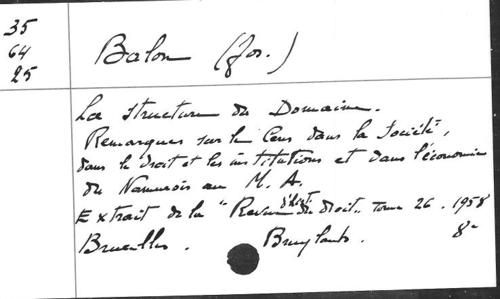 35
64
25
Balon (Jos.)
La structure du Domaine.
Remarques sur le Cens dans la Société,
dans le droit et les institutions et dans l'économie
du Namurois au M. A.
Extrait de la "Revue d'hist. du droit" Tome 26. 1958
Bruxelles. Bruylants. 8°